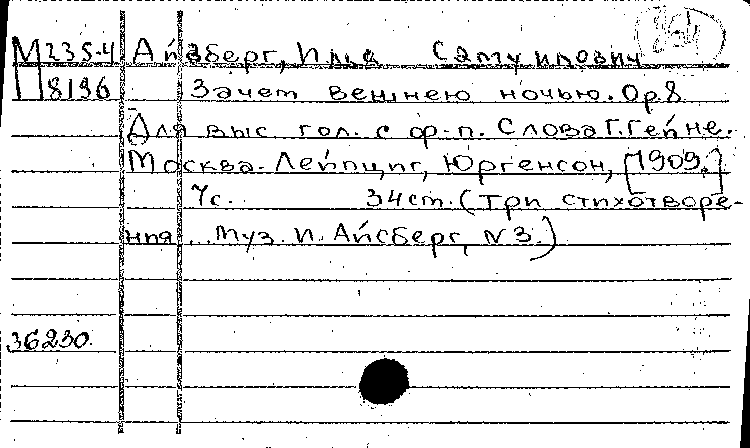 М235-4 Айзберг, Илья Самуилович
П8196 Зачем вешнею ночью. Op 8
Для выс гол. с ф-п. Слова Г. Гейне.
Москва-Лейпциг, Юргенсон, [1909.]
7с. 34 cm. (Три стихотворе-
ния... Муз. И. Айсберг, N 3.)
36230.